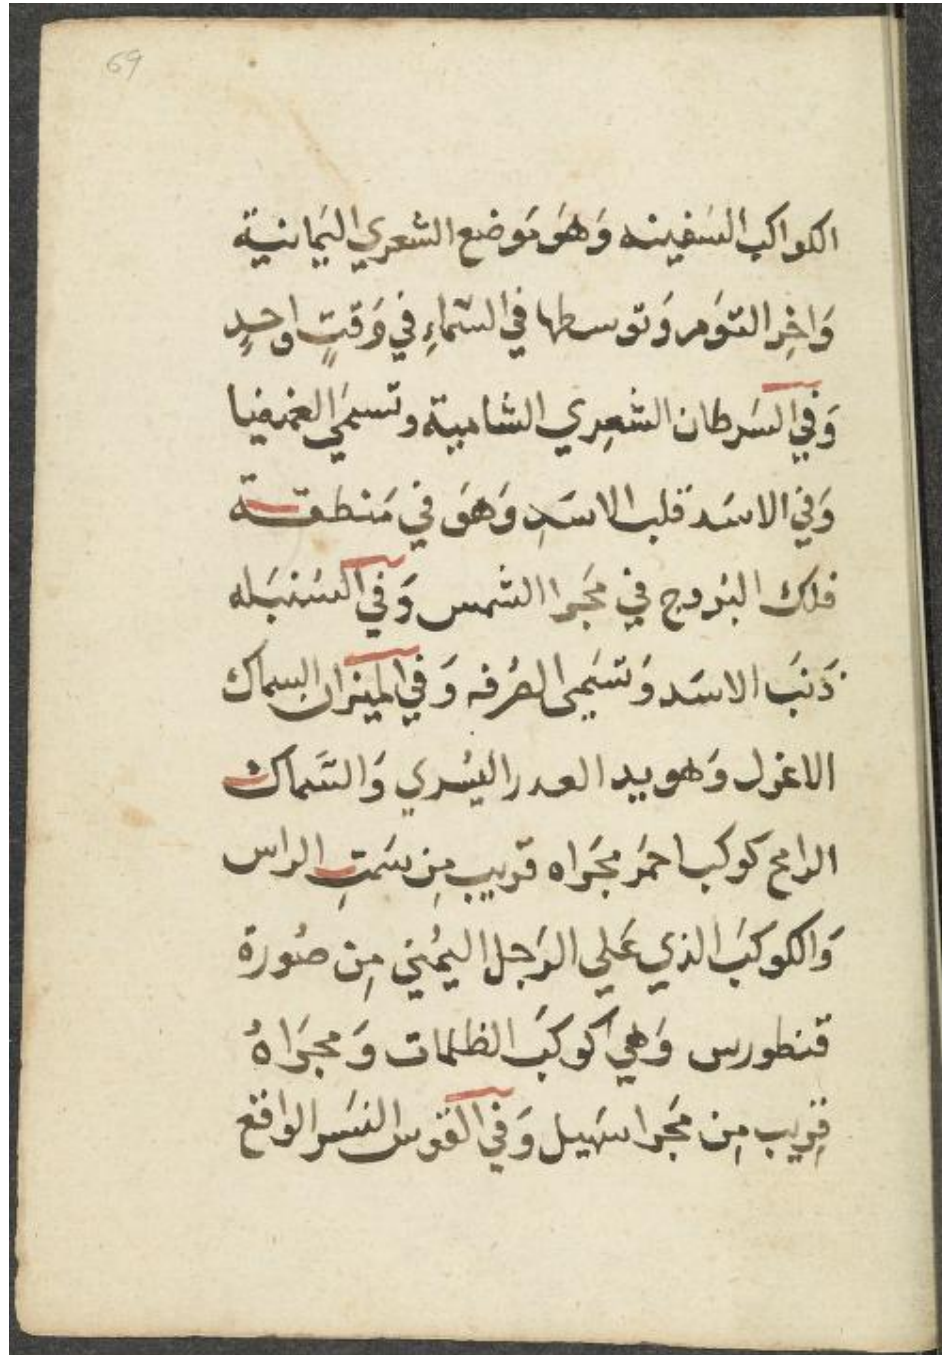 69
الكواكب السَفينه وَهوَ مَوضع الشعري اليَمانية
وَاخِر التوَمر وَتوسطها في السَّماءِ في وَقتٍ اوحدٍ
وَفي السَرطان الشعِري الشامية وتسمَي الغمضيا
وَفي الاسَد قلب الاسَدِ وَهوَ في مَنطقة
فلك البرُوج في مَجَرا الشمس وَفي السُنبَله
ذَنبَ الاسَد وَتسَمى الصَرفه وَفي الميزان السماك
الاعزل وَهو بيد العدر اليسُري وَالسَّماك
الرامح كوكب احمَر مجَراه قريب مِن سَمتِ الراس
وَالكوكبَ الذي عَلي الرَجل اليمُني مِن صُورة
قنطورس وَهي كوكبَ الظلمات وَمجرَاهُ
قِريب مِن مَجَرا سَهيل وَفي القوس النسَر الواقع